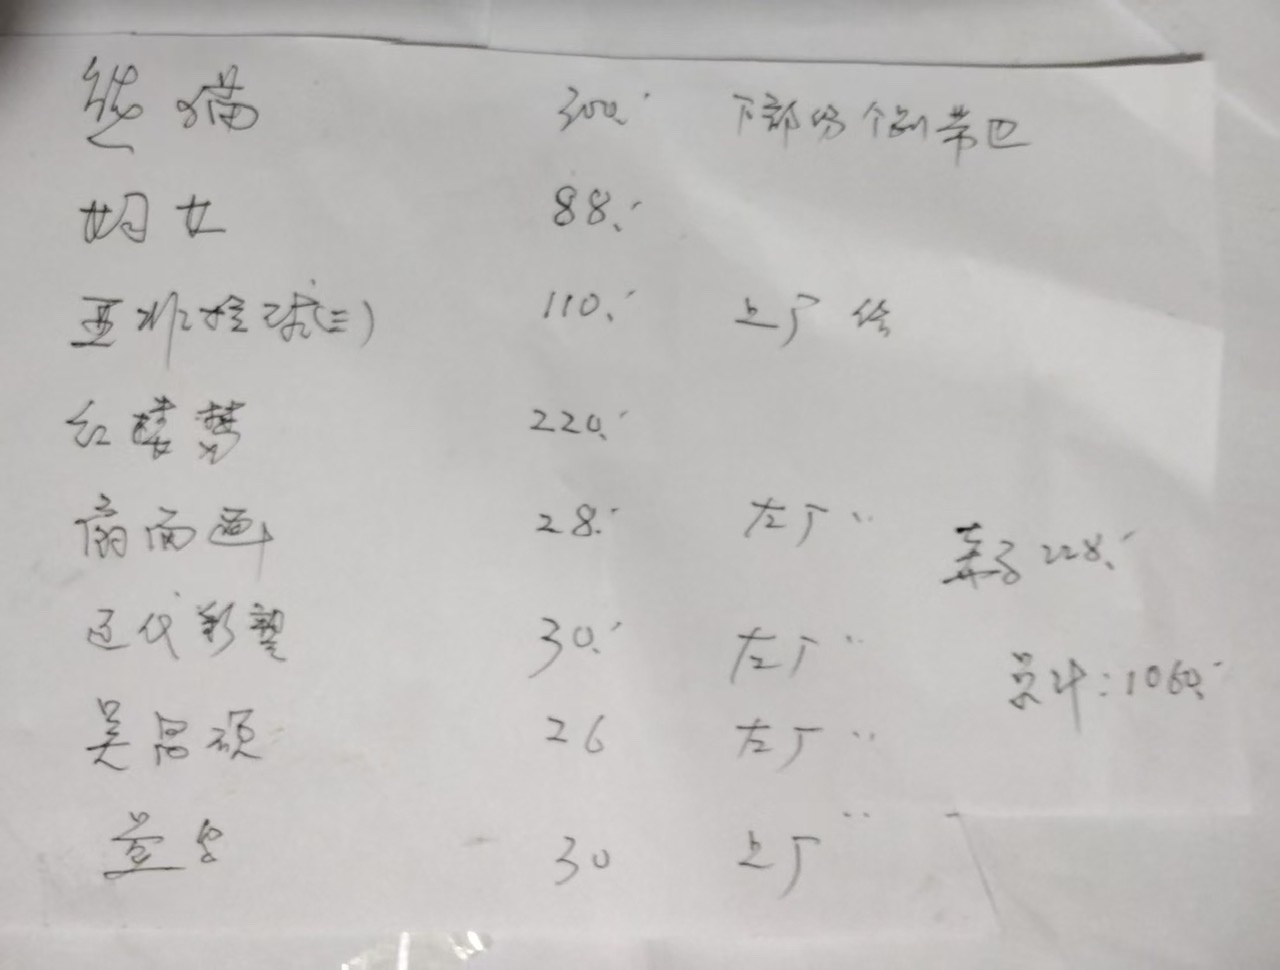 熊猫 300. 下部份个别带巴
妇女 88.
亚非拉球(三) 110. 上厂
红楼梦 220.
扇面画 28. 左厂 〃
228.
近代彩塑 30. 左厂 〃
总计:1060.
吴昌硕 26 左厂 〃
30 上厂 〃